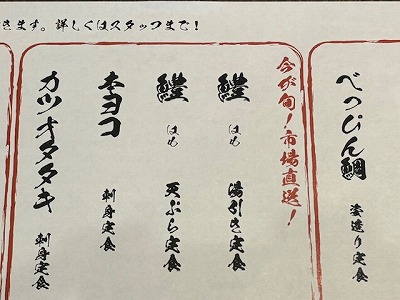 きます。詳しくはスタッフまで!
べっぴん鯛 姿造り定食
今が旬!市場直送!
鱧 はも 湯引き定食
鱧 はも 天ぷら定食
本ヨコ 刺身定食
カツオタタキ 刺身定食